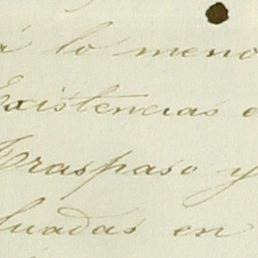 á lo meno
Existencias
Traspaso y
luadas en